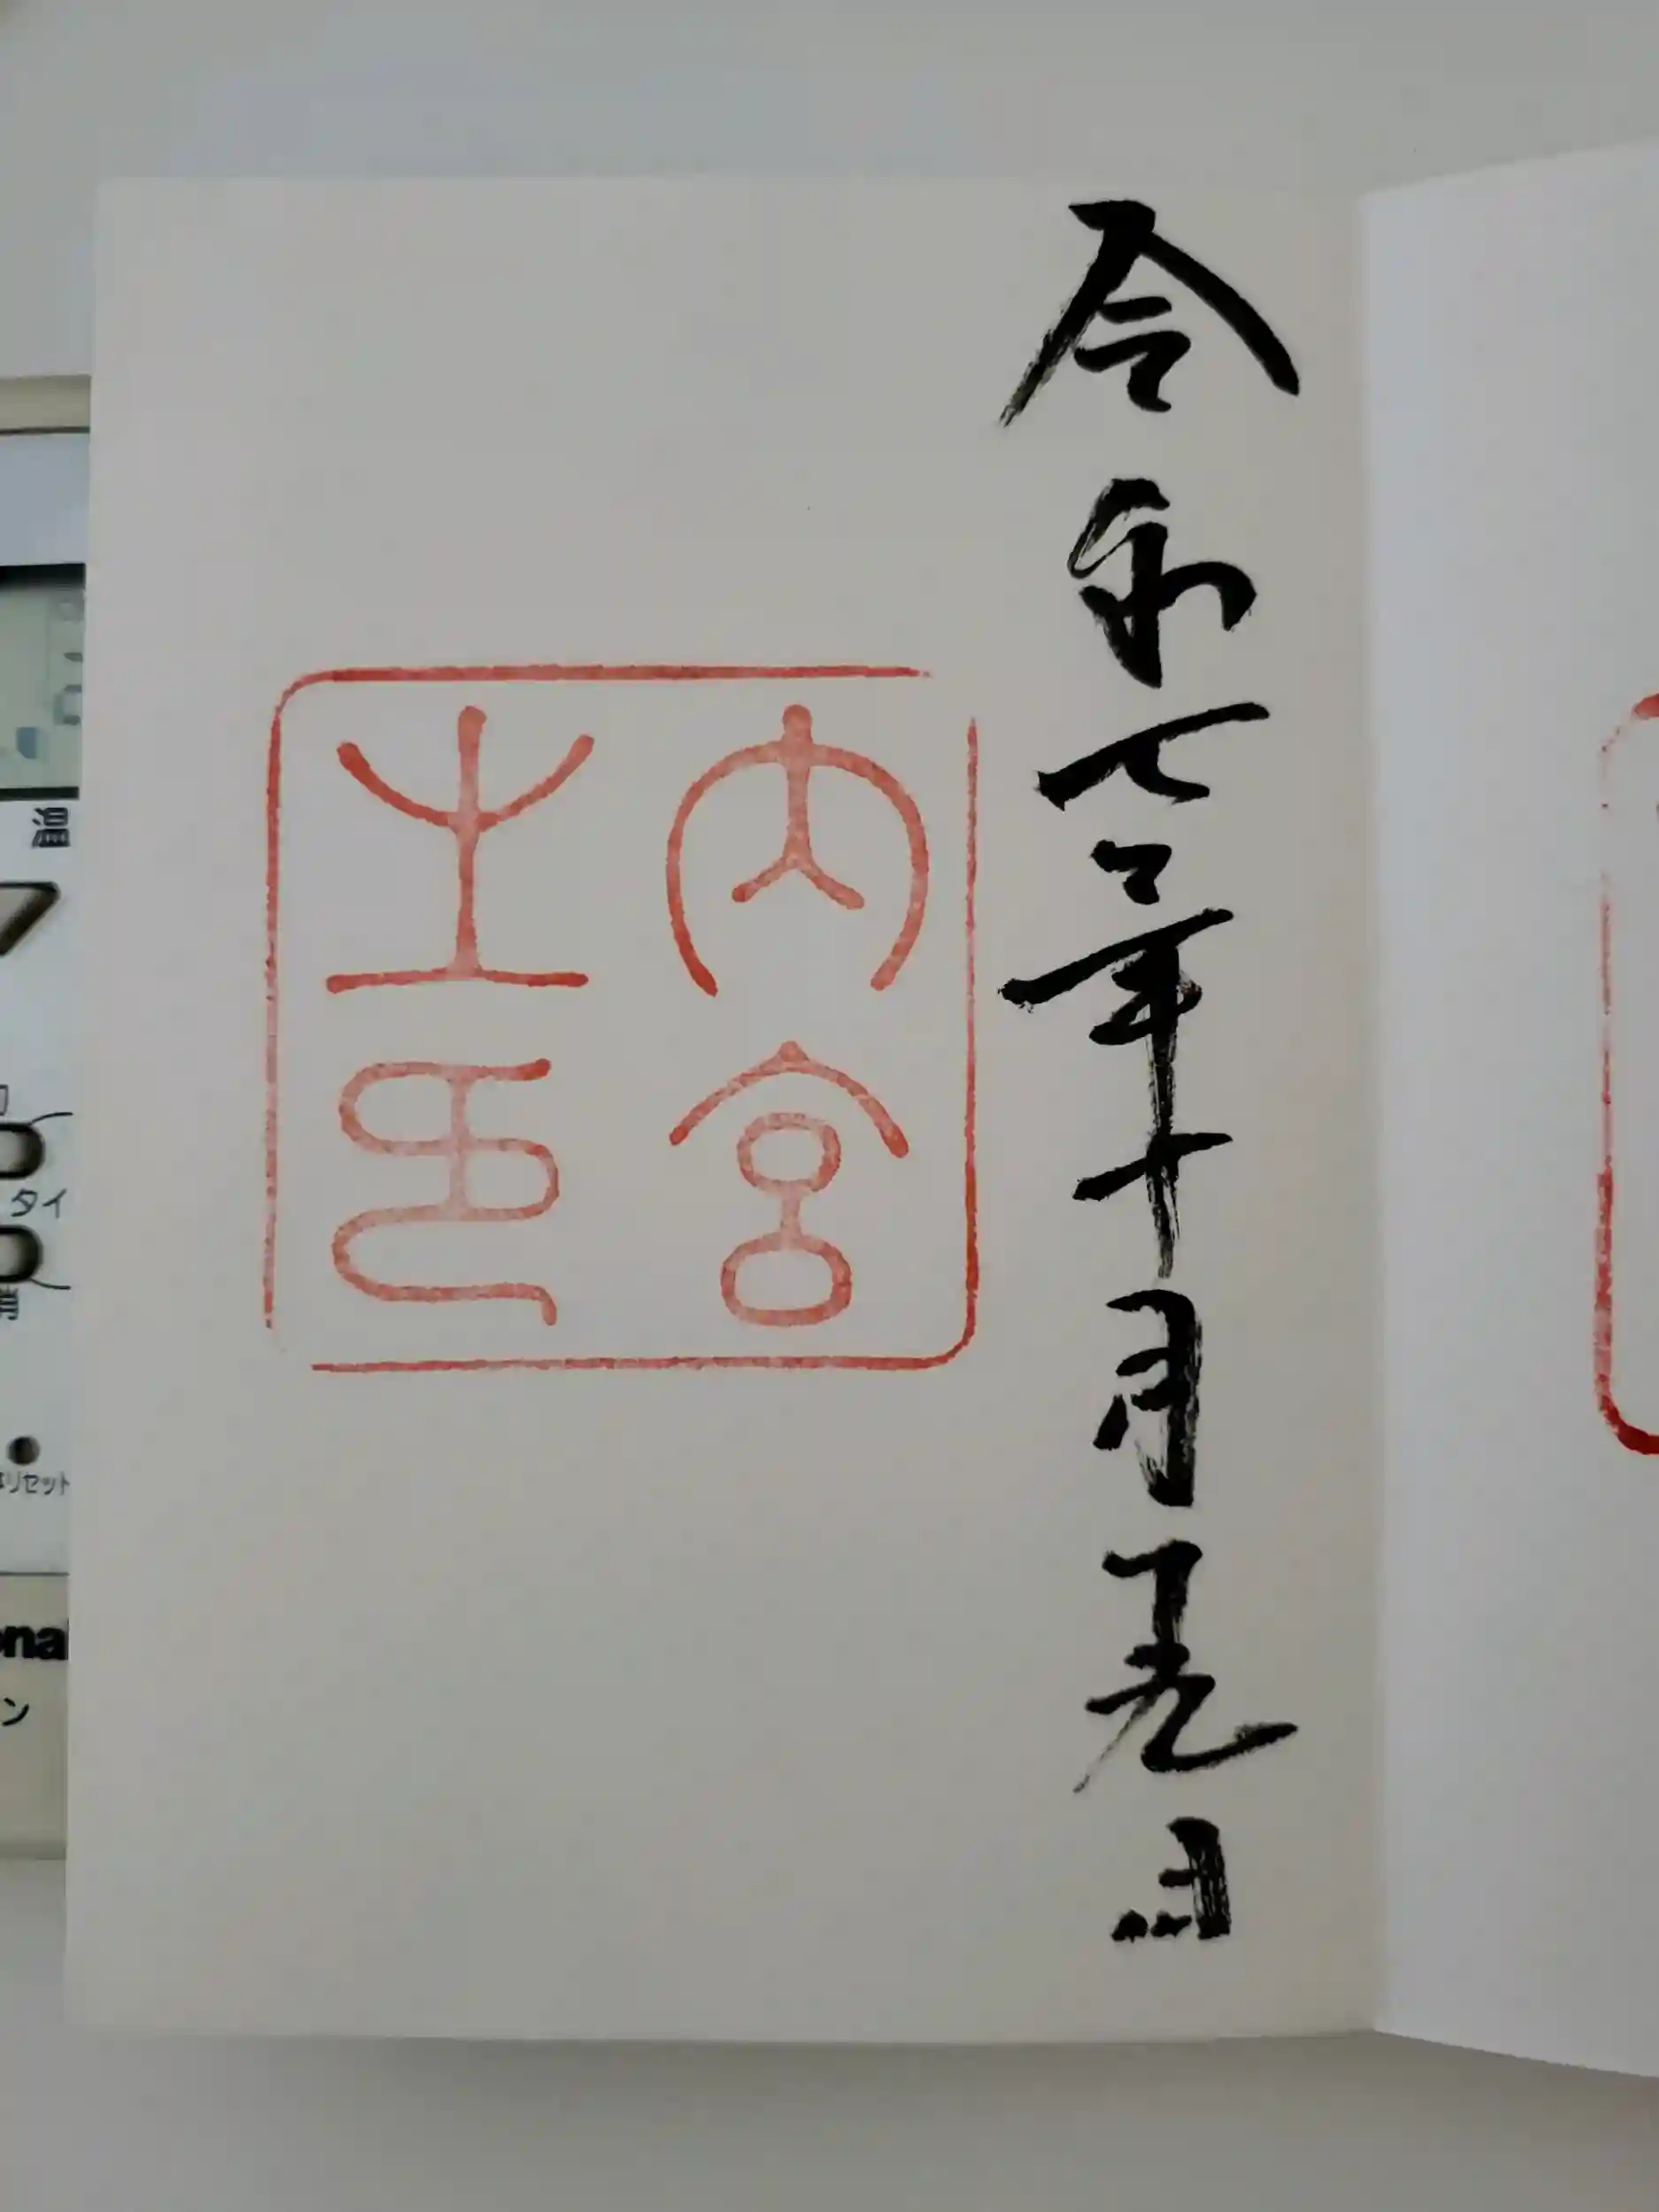 令和七年十月
日
内宮
之印
温
タイ
消
リセット
onal
ン